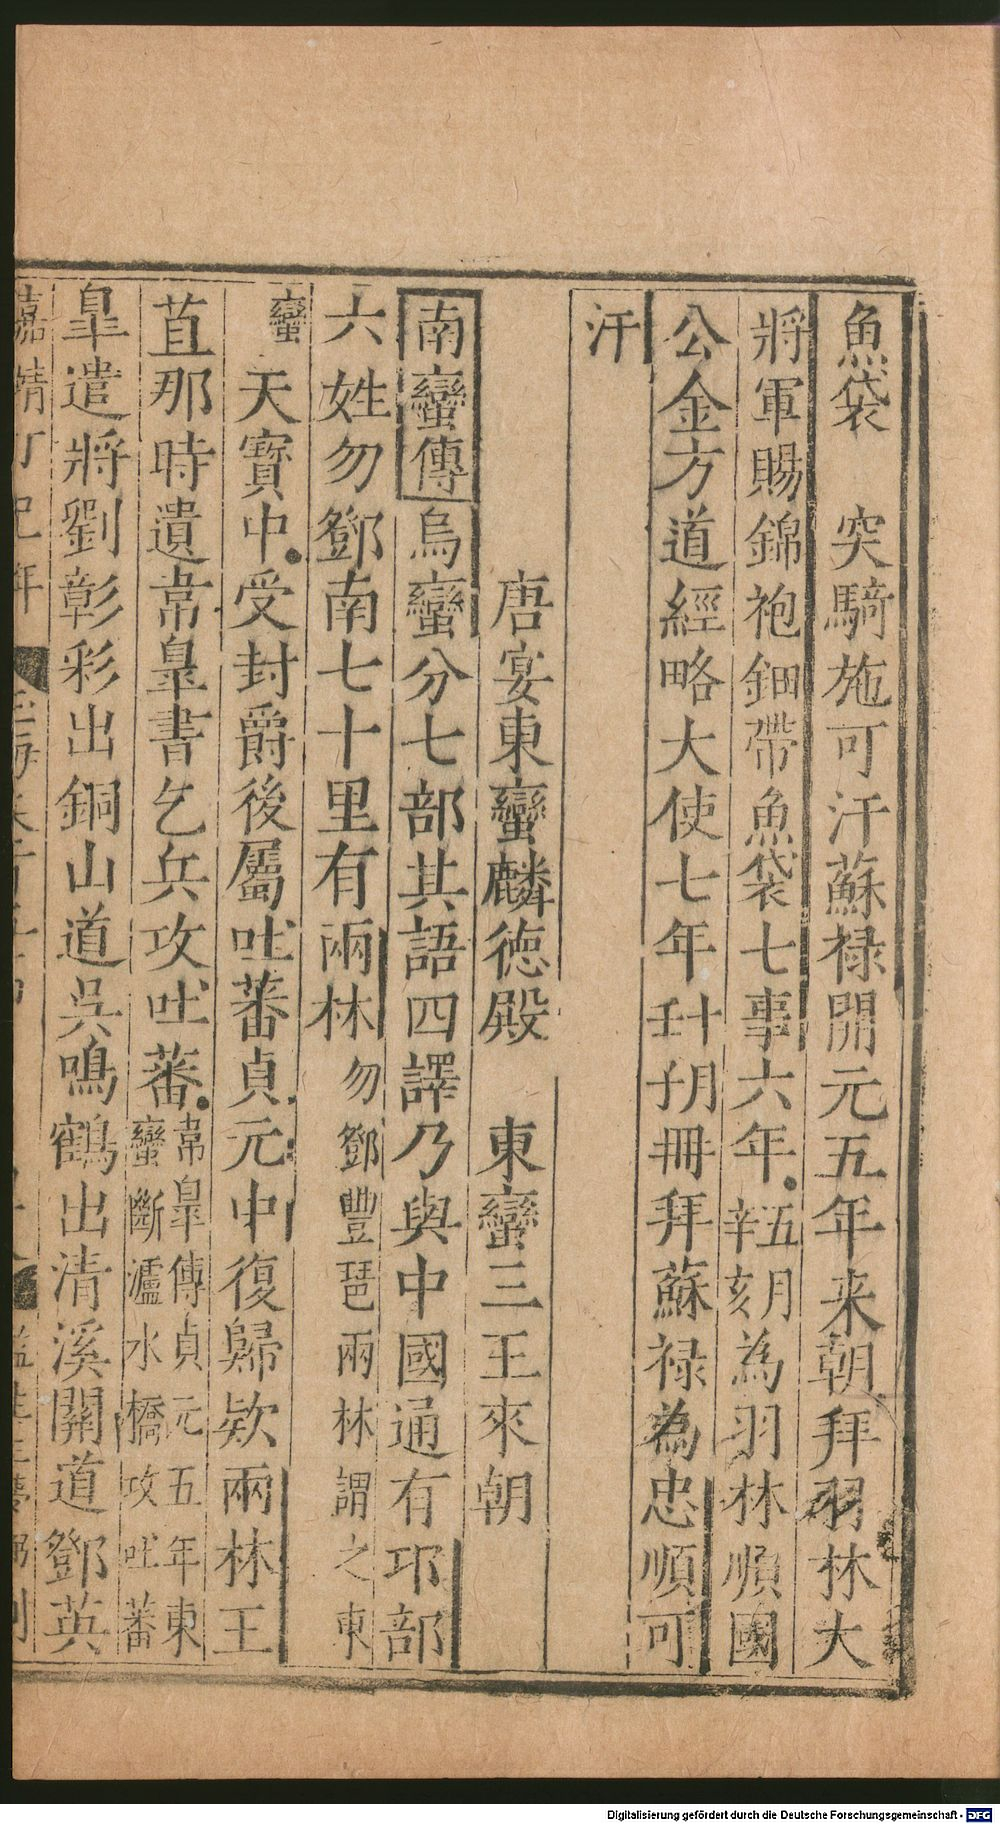 魚袋　突騎施可汗蘇祿開元五年来朝拜羽林大
將軍賜錦袍鈿帶魚袋七事六年五月辛亥為羽林順國
公金方道經略大使七年十月壬子冊拜蘇祿為忠順可
汗
唐宴東蠻麟德殿　東蠻三王來朝
南蠻傳烏蠻分七部其語四譯乃與中國通有邛部
六姓勿鄧南七十里有兩林勿鄧豐琶兩林謂之東
蠻天寶中受封爵後屬吐蕃貞元中復歸欵兩林王
苴那時遺韋皐書乞兵攻吐蕃韋皐傳貞元五年東蠻斷瀘水橋攻吐蕃
皐遣將劉彰彩出銅山道吳鳴鶴出清溪關道鄧英
嘉靖丁巳年
Digitalisierung gefördert durch die Deutsche Forschungsgemeinschaft - DFG